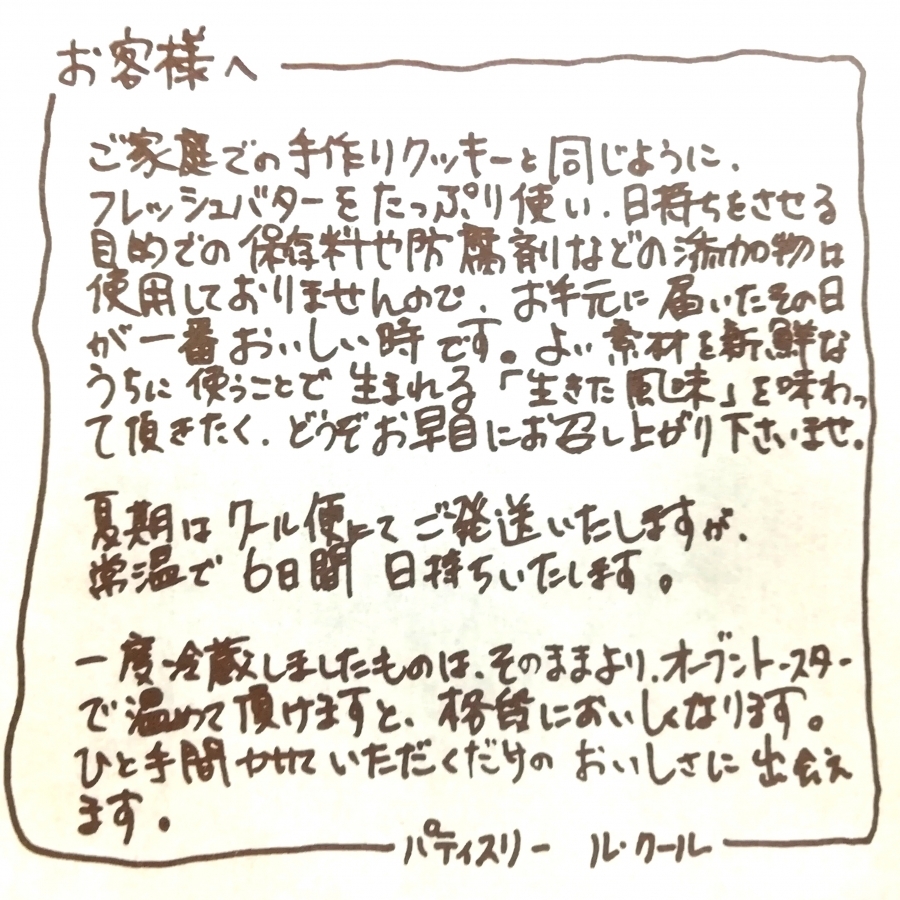 お客様へ
ご家庭での手作りクッキーと同じように、
フレッシュバターをたっぷり使い、日持ちをさせる
目めでの保存料や防腐剤などの添加物は
使用しておりませんので、お手元に届いたその日
が一番おいしい時です。よい素材を新鮮な
うちに使うことで生まれる「生きた風味」を味わっ
て頂きたく、どうぞお早目にお召し上がり下さいませ。
夏期はクール便にてご発送いたしますが、
常温で6日間 日持ちいたします。
一度冷蔵しましたものは、そのままより、オーブントースター
で温めて頂けますと、格皆においしくなります。
ひと手間かけていただくだけの おいしさに出会え
ます。
パティスリー ル・クール